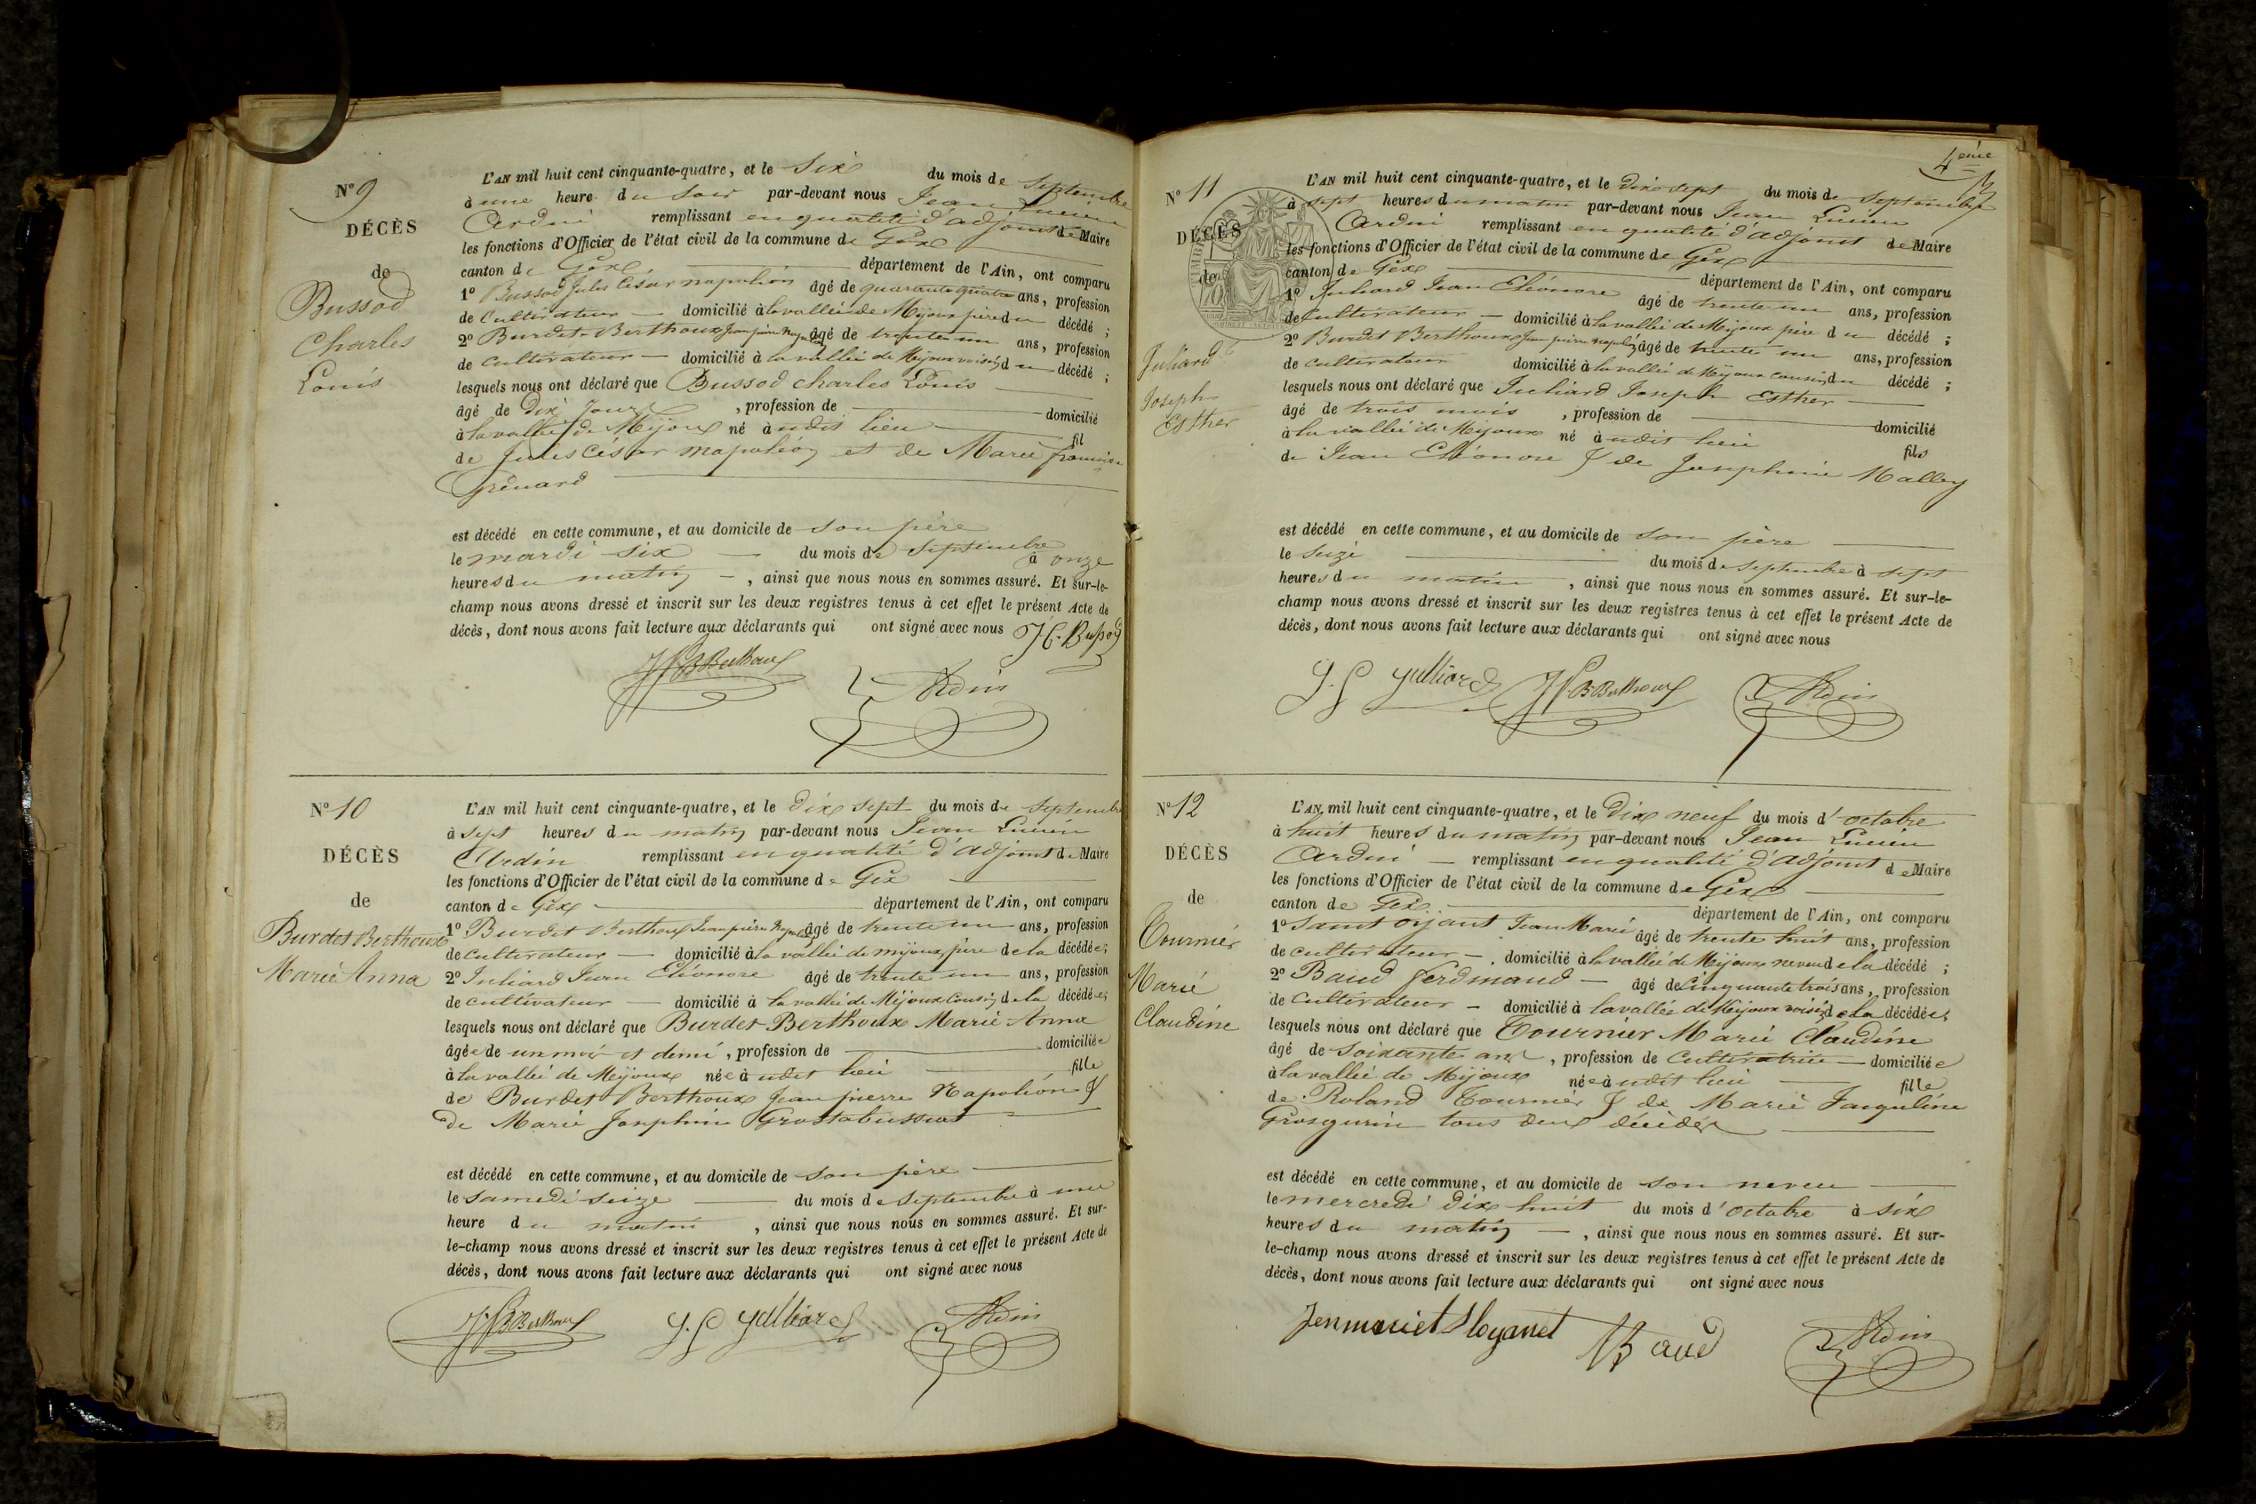 N° 9
DÉCÈS
de
Bussod
Charles
Louis
L'AN mil huit cent cinquante-quatre, et le Six du mois de Septembre
à une heure du Soir par-devant nous Jean Lucien
Ardin remplissant en qualité d'adjoint de Maire
les fonctions d'Officier de l'état civil de la commune de Gex
canton de Gex département de l'Ain, ont comparu
1° Bussod Jules César napoléon âgé de quarante quatre ans, profession
de Cultivateur domicilié à la vallée de Mijoux père du décédé ;
2° Burdet-Berthoux Jean pierre Nap. âgé de trente un ans, profession
de cultivateur domicilié à la vallée de Mijoux voisin du décédé ;
lesquels nous ont déclaré que Bussod charles Louis
âgé de Dix Jours , profession de domicilié
à la vallée de Mijoux né à udit lieu fil
de Jules César Napoléon et de Marie françoise
Grenard
est décédé en cette commune, et au domicile de son père
le mardi six du mois de Septembre à onze
heures du matin , ainsi que nous nous en sommes assuré. Et sur-le-
champ nous avons dressé et inscrit sur les deux registres tenus à cet effet le présent Acte de
décès, dont nous avons fait lecture aux déclarants qui ont signé avec nous
JC. Bussod
JPBBerthoux Ardin
N° 10
DÉCÈS
de
Burdet Berthoux
Marie Anna
L'AN mil huit cent cinquante-quatre, et le Dix sept du mois de Septembre
à sept heures du matin par-devant nous Jean Lucien
Ardin remplissant en qualité d'adjoint de Maire
les fonctions d'Officier de l'état civil de la commune de Gex
canton de Gex département de l'Ain, ont comparu
1° Burdet Berthoux Jean pierre Nap. âgé de trente un ans, profession
de cultivateur domicilié à la vallée de mijoux père de la décédée ;
2° Juliard Jean Eléonore âgé de trente un ans, profession
de cultivateur domicilié à la vallée de Mijoux Cousin de la décédée ;
lesquels nous ont déclaré que Burdet-Berthoux Marie-Anna
âgée de un mois et demi , profession de domiciliée
à la vallée de Mijoux née à udit lieu fille
de Burdet Berthoux Jean pierre Napoléon &
de Marie Josephine Grostabussiat
est décédé en cette commune, et au domicile de son père
le samedi seize du mois de Septembre à une
heure du matin , ainsi que nous nous en sommes assuré. Et sur-
le-champ nous avons dressé et inscrit sur les deux registres tenus à cet effet le présent Acte de
décès, dont nous avons fait lecture aux déclarants qui ont signé avec nous
JPBBerthoux J. E Julliard Ardin
4eme
N° 11
DÉCÈS
de
Juliard
Joseph
Esther
L'AN mil huit cent cinquante-quatre, et le Dix sept du mois de Septembre
à sept heures du matin par-devant nous Jean Lucien
Ardin remplissant en qualité d'adjoint de Maire
les fonctions d'Officier de l'état civil de la commune de Gex
canton de Gex département de l'Ain, ont comparu
1° Juliard Jean Eléonore âgé de trente un ans, profession
de Cultivateur domicilié à la vallée de Mijoux père du décédé ;
2° Burdet Berthoux Jean pierre Napoléon âgé de trente un ans, profession
de cultivateur domicilié à la vallée de Mijoux cousin du décédé ;
lesquels nous ont déclaré que Juliard Joseph Esther
âgé de trois mois , profession de domicilié
à la vallée de Mijoux né à udit lieu fils
de Jean Eléonore & de Josephine Malley
est décédé en cette commune, et au domicile de son père
le Seize du mois de Septembre à sept
heures du matin , ainsi que nous nous en sommes assuré. Et sur-le-
champ nous avons dressé et inscrit sur les deux registres tenus à cet effet le présent Acte de
décès, dont nous avons fait lecture aux déclarants qui ont signé avec nous
J. E Julliard JPBBerthoux Ardin
N° 12
DÉCÈS
de
Tournier
Marie
Claudine
L'AN mil huit cent cinquante-quatre, et le Dix neuf du mois d'octobre
à huit heures du matin par-devant nous Jean Lucien
Ardin remplissant en qualité d'adjoint de Maire
les fonctions d'Officier de l'état civil de la commune de Gex
canton de Gex département de l'Ain, ont comparu
1° Saint oyant Jean Marie âgé de trente huit ans, profession
de cultivateur domicilié à la vallée de Mijoux neveu de la décédé ;
2° Baud ferdinand âgé de cinquante trois ans, profession
de Cultivateur domicilié à la vallée de Mijoux voisin de la décédée ;
lesquels nous ont déclaré que Tournier Marie Claudine
âgé de soixante ans , profession de Cultivatrice domiciliée
à la vallée de Mijoux née à udit lieu fille
de Roland Tournier & de Marie Jaquéline
Grosgurin tous deux décédés
est décédé en cette commune, et au domicile de son neveu
le mercredi dix huit du mois d'octobre à six
heures du matin , ainsi que nous nous en sommes assuré. Et sur-
le-champ nous avons dressé et inscrit sur les deux registres tenus à cet effet le présent Acte de
décès, dont nous avons fait lecture aux déclarants qui ont signé avec nous
Baud Ardin